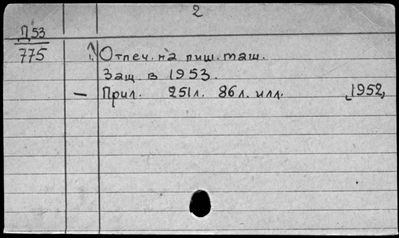 2
Д53
775
Отпеч. на пиш. таш.
Защ. в 1953.
– Прил. 251л. 86л. илл. 1952,